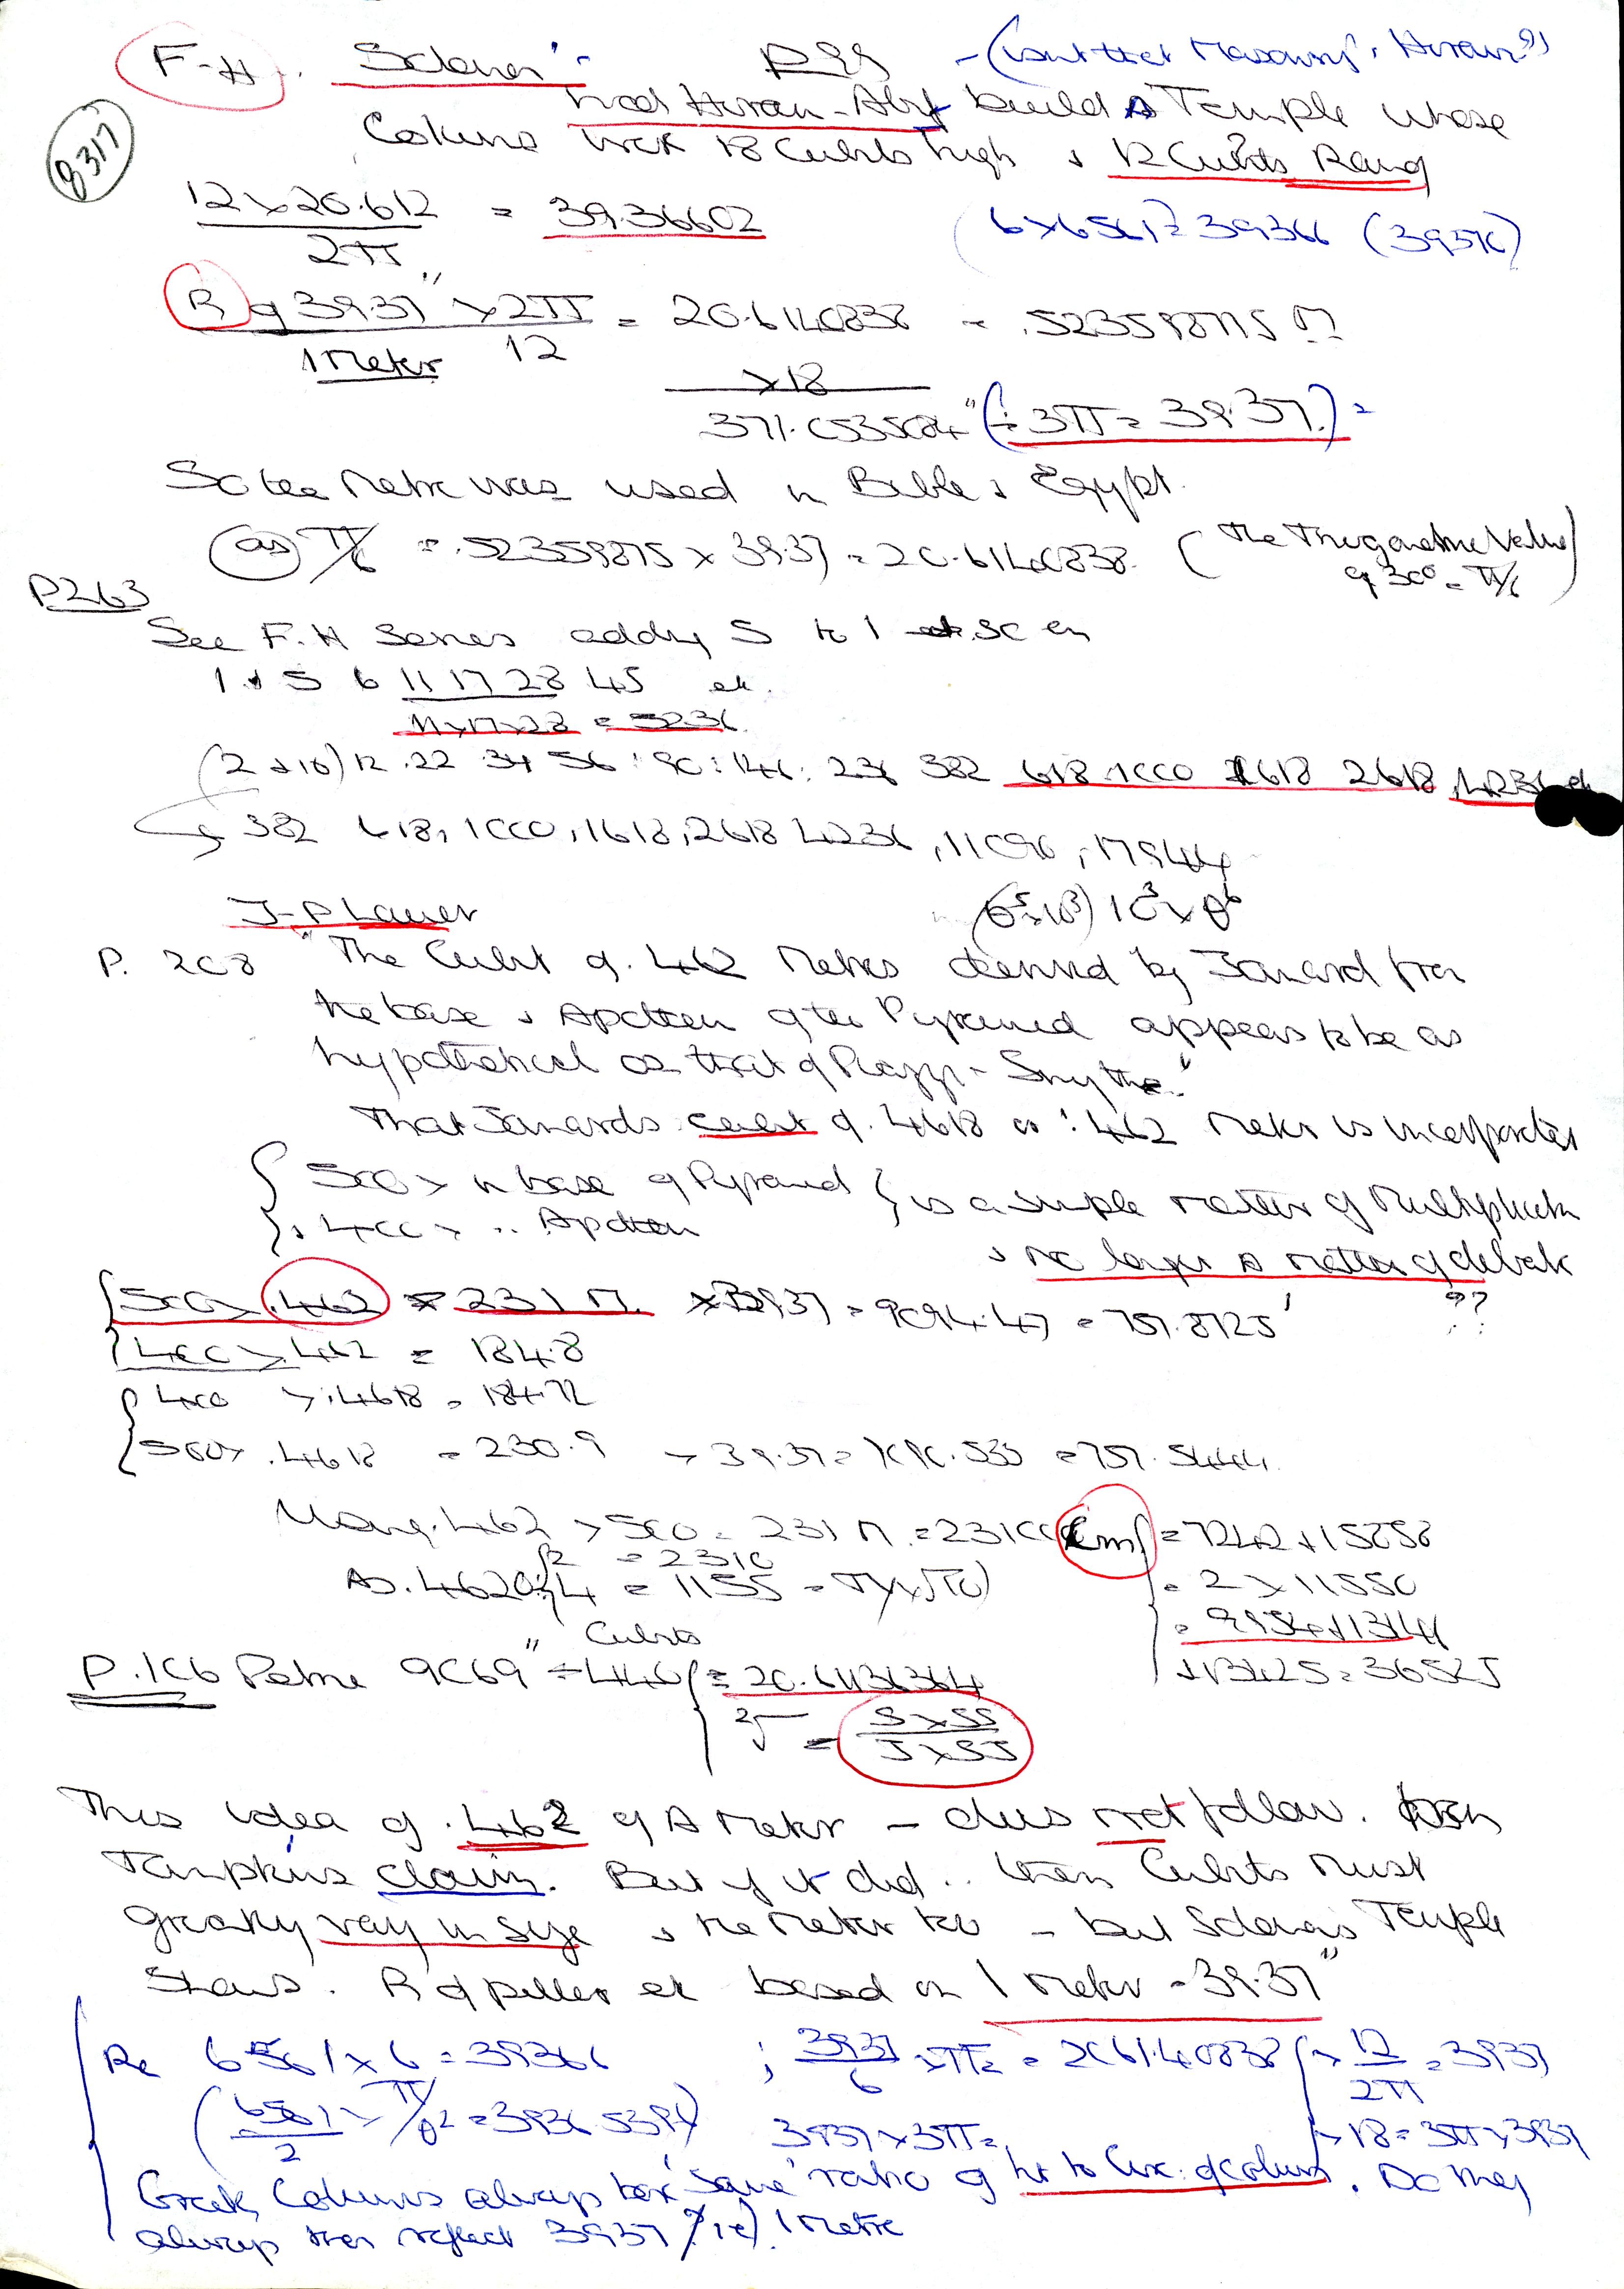 F-H. P99 - (isnt that Masonry's Hiram?)
had Hiram-Abif build A Temple whose
Columns were 18 Cubits high & 12 Cubits Round
8317
12 x 20.612 / 2π = 39.36602 (6 x 6561 = 39366 (39376)
R of 39.37" x 2π / 12 = 20.6140838 = .523598775 M
1 Meter
x 18
371.053504" (÷ 3π = 39.37.) =
So the Metre was used in Bible & Egypt.
(as) π/6 = .52359875 x 39.37 = 20.6140838. (The Trigonometric Value
of 30° = π/6)
P263
See F.H Series adding 5 to 1 & so on
1 & 5 6 11 17 28 45 etc.
11x17x28 = 5236
(2 & 10) 12 . 22 34 56 : 90 : 146 : 236 382 618 1000 1618 2618 4236 etc
382 618, 1000, 1618, 2618 4236, 11090, 17944
J-P Lauer
P. 208 "The Cubit of .462 Metres derived by Jomard from
the base & Apothem of the Pyramid appears to be as
hypothetical as that of Piazzi-Smythe."
That Jomards cubit of .4618 or .462 Meter is incorporated
500 x in base of Pyramid } is a simple matter of Multiplication
& 400 x .. Apothem
& no longer A matter of debate
??
500 x .462 = 231 M. x 39.37 = 9094.47 = 757.8725'
400 x .462 = 184.8
400 x .4618 = 184.72
500 x .4618 = 230.9 x 39.37 = 9090.533 = 757.5444
Using .462 x 500 = 231 M. = 23100 cm = 7242 + 15858
/2 = 2310
As .4620 /4 = 1155 = 2 x 11550
= 9954 + 13146
+ 13425 = 36525
P.106 Petrie 9069" ÷ 440 Cubits = 20.6136364
This idea of .462 of A Meter - does not follow. from
Tompkins claim. But if it did .. then Cubits must
greatly vary in size & the Meter too - but Solomons Temple
Shows. R of pillar etc based on 1 Meter = 39.37"
Re 6561 x 6 = 39366 ; 3937/6 x π = 2061.40838 x 12/2π = 3937
(6561/2 x π/θ² = 3936.5394) 3937 x 3π = x 18 = 3π x 3937
Greek Columns always have 'same' ratio of ht to Circ. of column. Do they
always then reflect 3937? ie) 1 metre